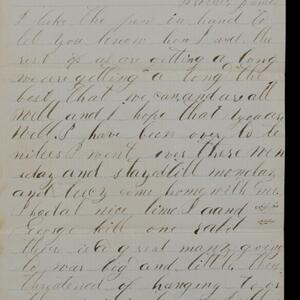 I take the pen in hand to
let you know how I and the
rest of us are getting a long
we are getting a long the
best that we can and are all
well and I hope that you are
Well I have been over to
I went over there
and stayed till monday
and lucy come home with me
I had a nice time I aand
George hill one
there is a great many going
to war big and little they
threatened of hanging